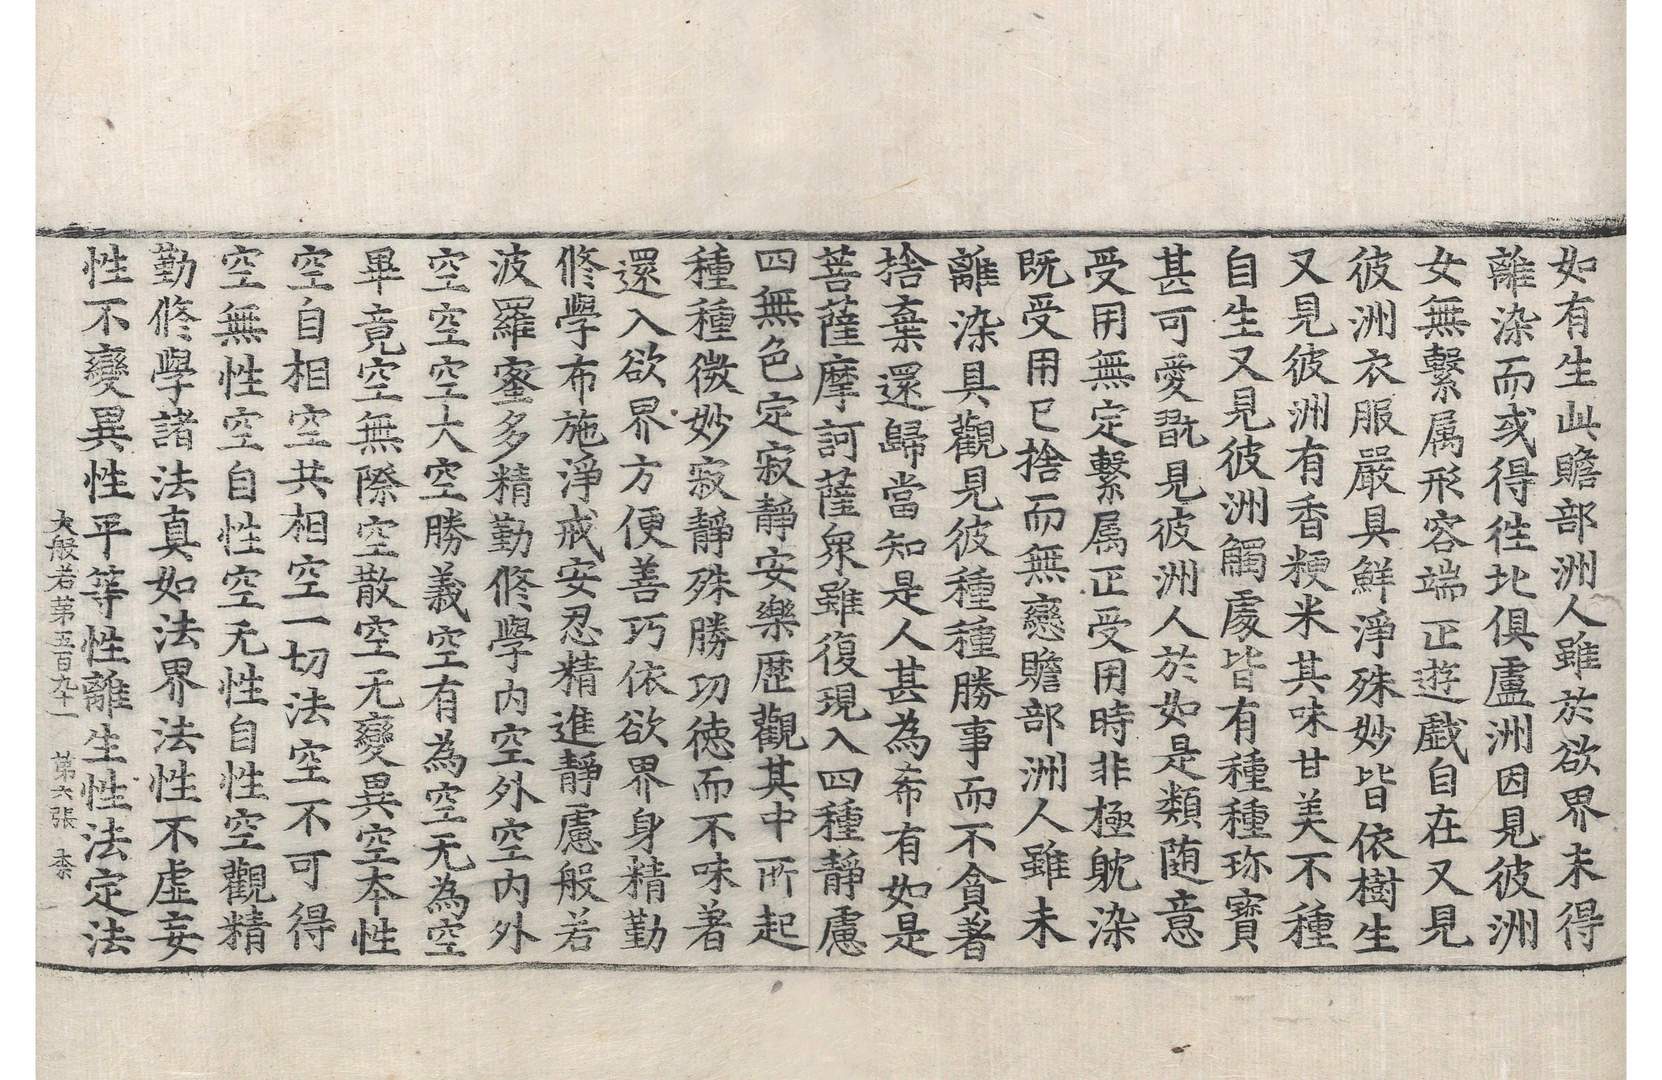 如有生此贍部洲人雖於欲界未得
離染而或得徃北俱盧洲因見彼洲
女無繫属形容端正遊戲自在又見
彼洲衣服嚴具鮮淨殊妙皆依樹生
又見彼洲有香粳米其味甘美不種
自生又見彼洲觸處皆有種種珎寶
甚可愛翫見彼洲人於如是類随意
受用無定繫属正受用時非極躭染
既受用已捨而無戀贍部洲人雖未
離染具觀見彼種種勝事而不貪著
捨棄還歸當知是人甚為希有如是
菩薩摩訶薩衆雖復現入四種靜慮
四無色定寂靜安樂歷觀其中所起
種種微妙寂靜殊勝功徳而不味著
還入欲界方便善巧依欲界身精勤
修學布施淨戒安忍精進靜慮般若
波羅蜜多精勤修學内空外空内外
空空空大空勝義空有為空无為空
畢竟空無際空散空无變異空本性
空自相空共相空一切法空不可得
空無性空自性空无性自性空觀精
勤修學諸法真如法界法性不虛妄
性不變異性平等性離生性法定法
大般若第五百九十一　第六張　柰